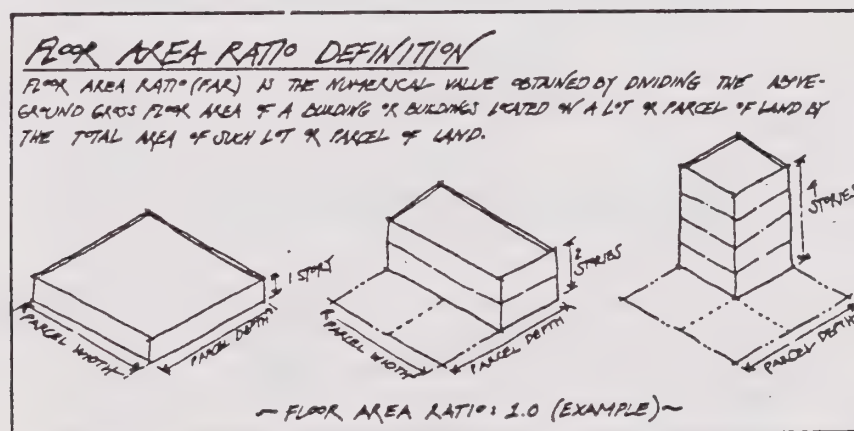 FLOOR AREA RATIO DEFINITION
FLOOR AREA RATIO (FAR) IS THE NUMERICAL VALUE OBTAINED BY DIVIDING THE ABOVE-
GROUND GROSS FLOOR AREA OF A BUILDING OR BUILDINGS LOCATED ON A LOT OR PARCEL OF LAND BY
THE TOTAL AREA OF SUCH LOT OR PARCEL OF LAND.
1 STORY
PARCEL WIDTH
PARCEL DEPTH
2
STORIES
PARCEL WIDTH
PARCEL DEPTH
4
STORIES
PARCEL DEPTH
~ FLOOR AREA RATIO: 1.0 (EXAMPLE) ~